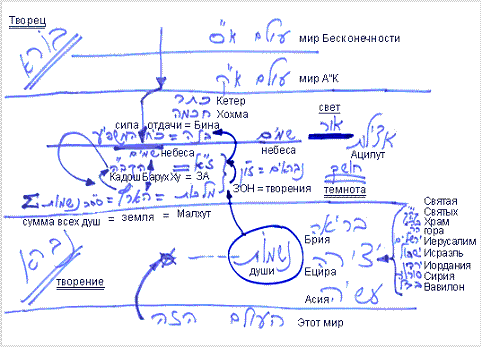 Творец
בורא
עולם א"ס мир Бесконечности
עולם א"ק мир А"К
כתר Кетер
חכמה Хохма
свет
сила отдачи = Бина
בינה = כח המשפיע
שמים
небеса
אור
אצילות
Ацилут
שמים
небеса
הקב"ה = ז"א
КадошБарухХу = ЗА
זו"ן = נבראים
ЗОН = творения
חושך
темнота
Σ נשמות = הארץ = מלכות
сумма всех душ = земля = Малхут
נברא
творение
בריאה
Брия
נשמות
души
יצירה
Ецира
עשיה
Асия
Святая
Святых
Храм
гора
Иерусалим
Исраэль
Иордания
Сирия
Вавилон
העולם הזה Этот мир